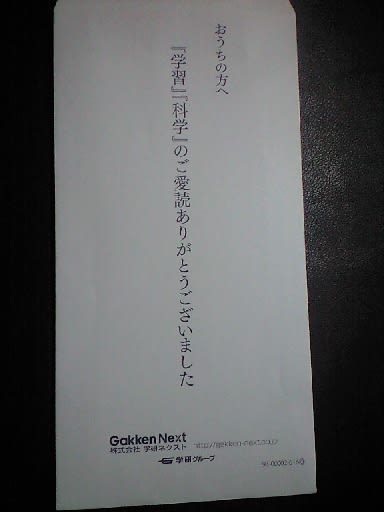 おうちの方へ
『学習』『科学』のご愛読ありがとうございました
Gakken Next http://gakken-next.co.jp/
株式会社 学研ネクスト
学研グループ